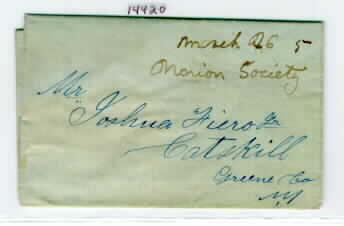 14420
March 26 5
Marion Society
Mr
Joshua Fiero Jr
Catskill
Greene Co
NY